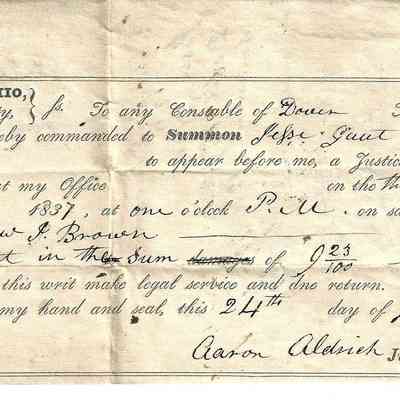 HIO,
ty, } ss. To any Constable of Dover T
eby commanded to Summon Jesse Gaut
to appear before me, a Justic
t my Office on the th
1837, at one o'clock P.M. on s
w J. Brown
t in the Sum damages of 9 23/100
this writ make legal service and due return.
my hand and seal, this 24th day of
Aaron Aldrich J